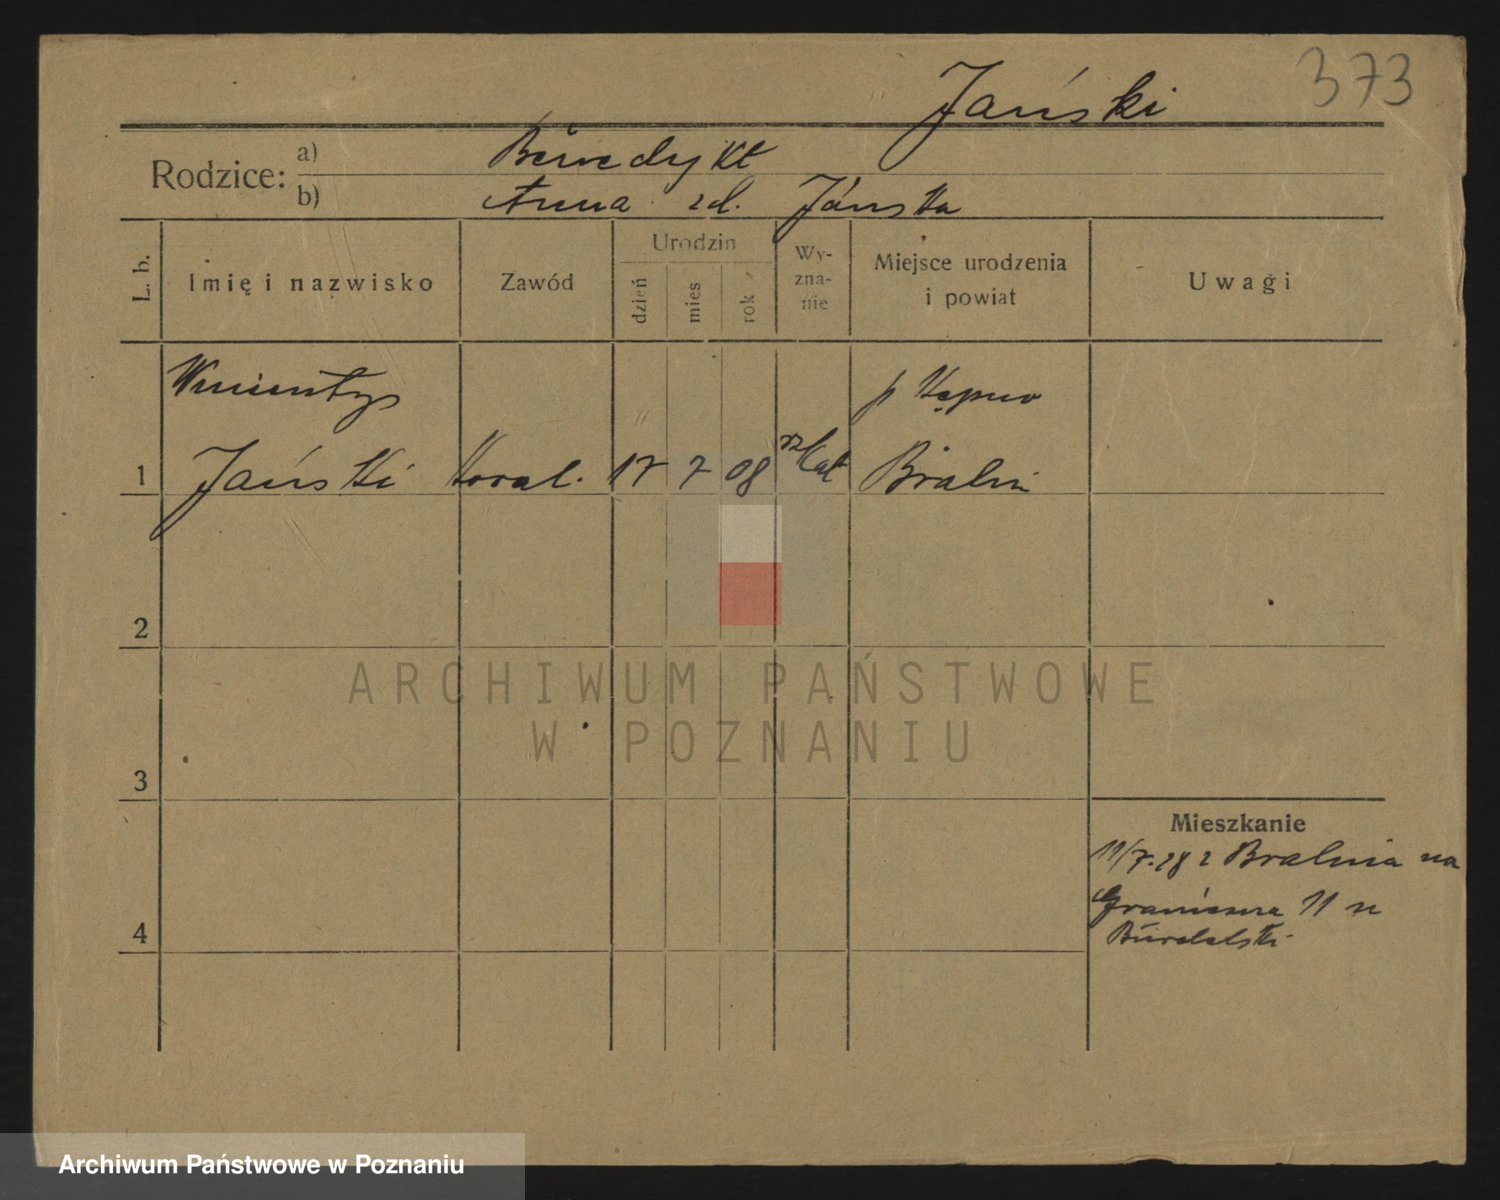 373
Jański
Rodzice: a) Benedykt
b) Anna zd. Jańska
L. b.
Imię i nazwisko
Zawód
Urodzin
dzień
mies
rok
Wy-
zna-
nie
Miejsce urodzenia
i powiat
Uwagi
Wincenty p Kępno
1 Jański kowal. 17 7 08 rz kat Bralin
2
3
4
ARCHIWUM PAŃSTWOWE
W POZNANIU
Mieszkanie
19/7.28 z Bralina na
Graniczna 11 u
Archiwum Państwowe w Poznaniu